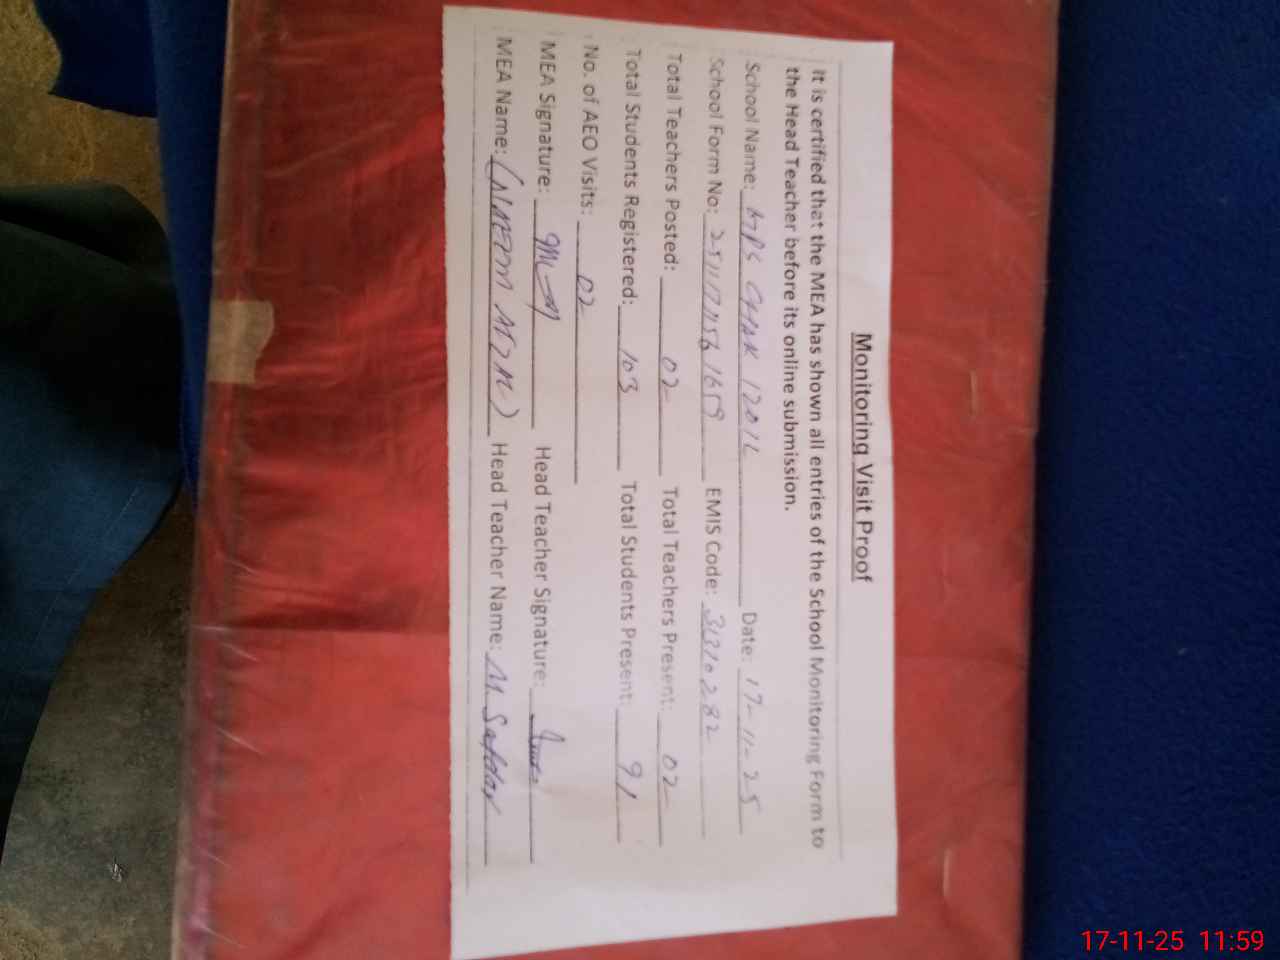 Monitoring Visit Proof
It is certified that the MEA has shown all entries of the School Monitoring Form to
the Head Teacher before its online submission.
School Name: GPS CHAK 120/L Date: 17-11-25
School Form No: 1659 EMIS Code: 31310282
Total Teachers Posted: 02 Total Teachers Present: 02
Total Students Registered: 103 Total Students Present: 91
No. of AEO Visits: 02
MEA Signature: Head Teacher Signature:
MEA Name: Head Teacher Name: M. Safdar
17-11-25 11:59